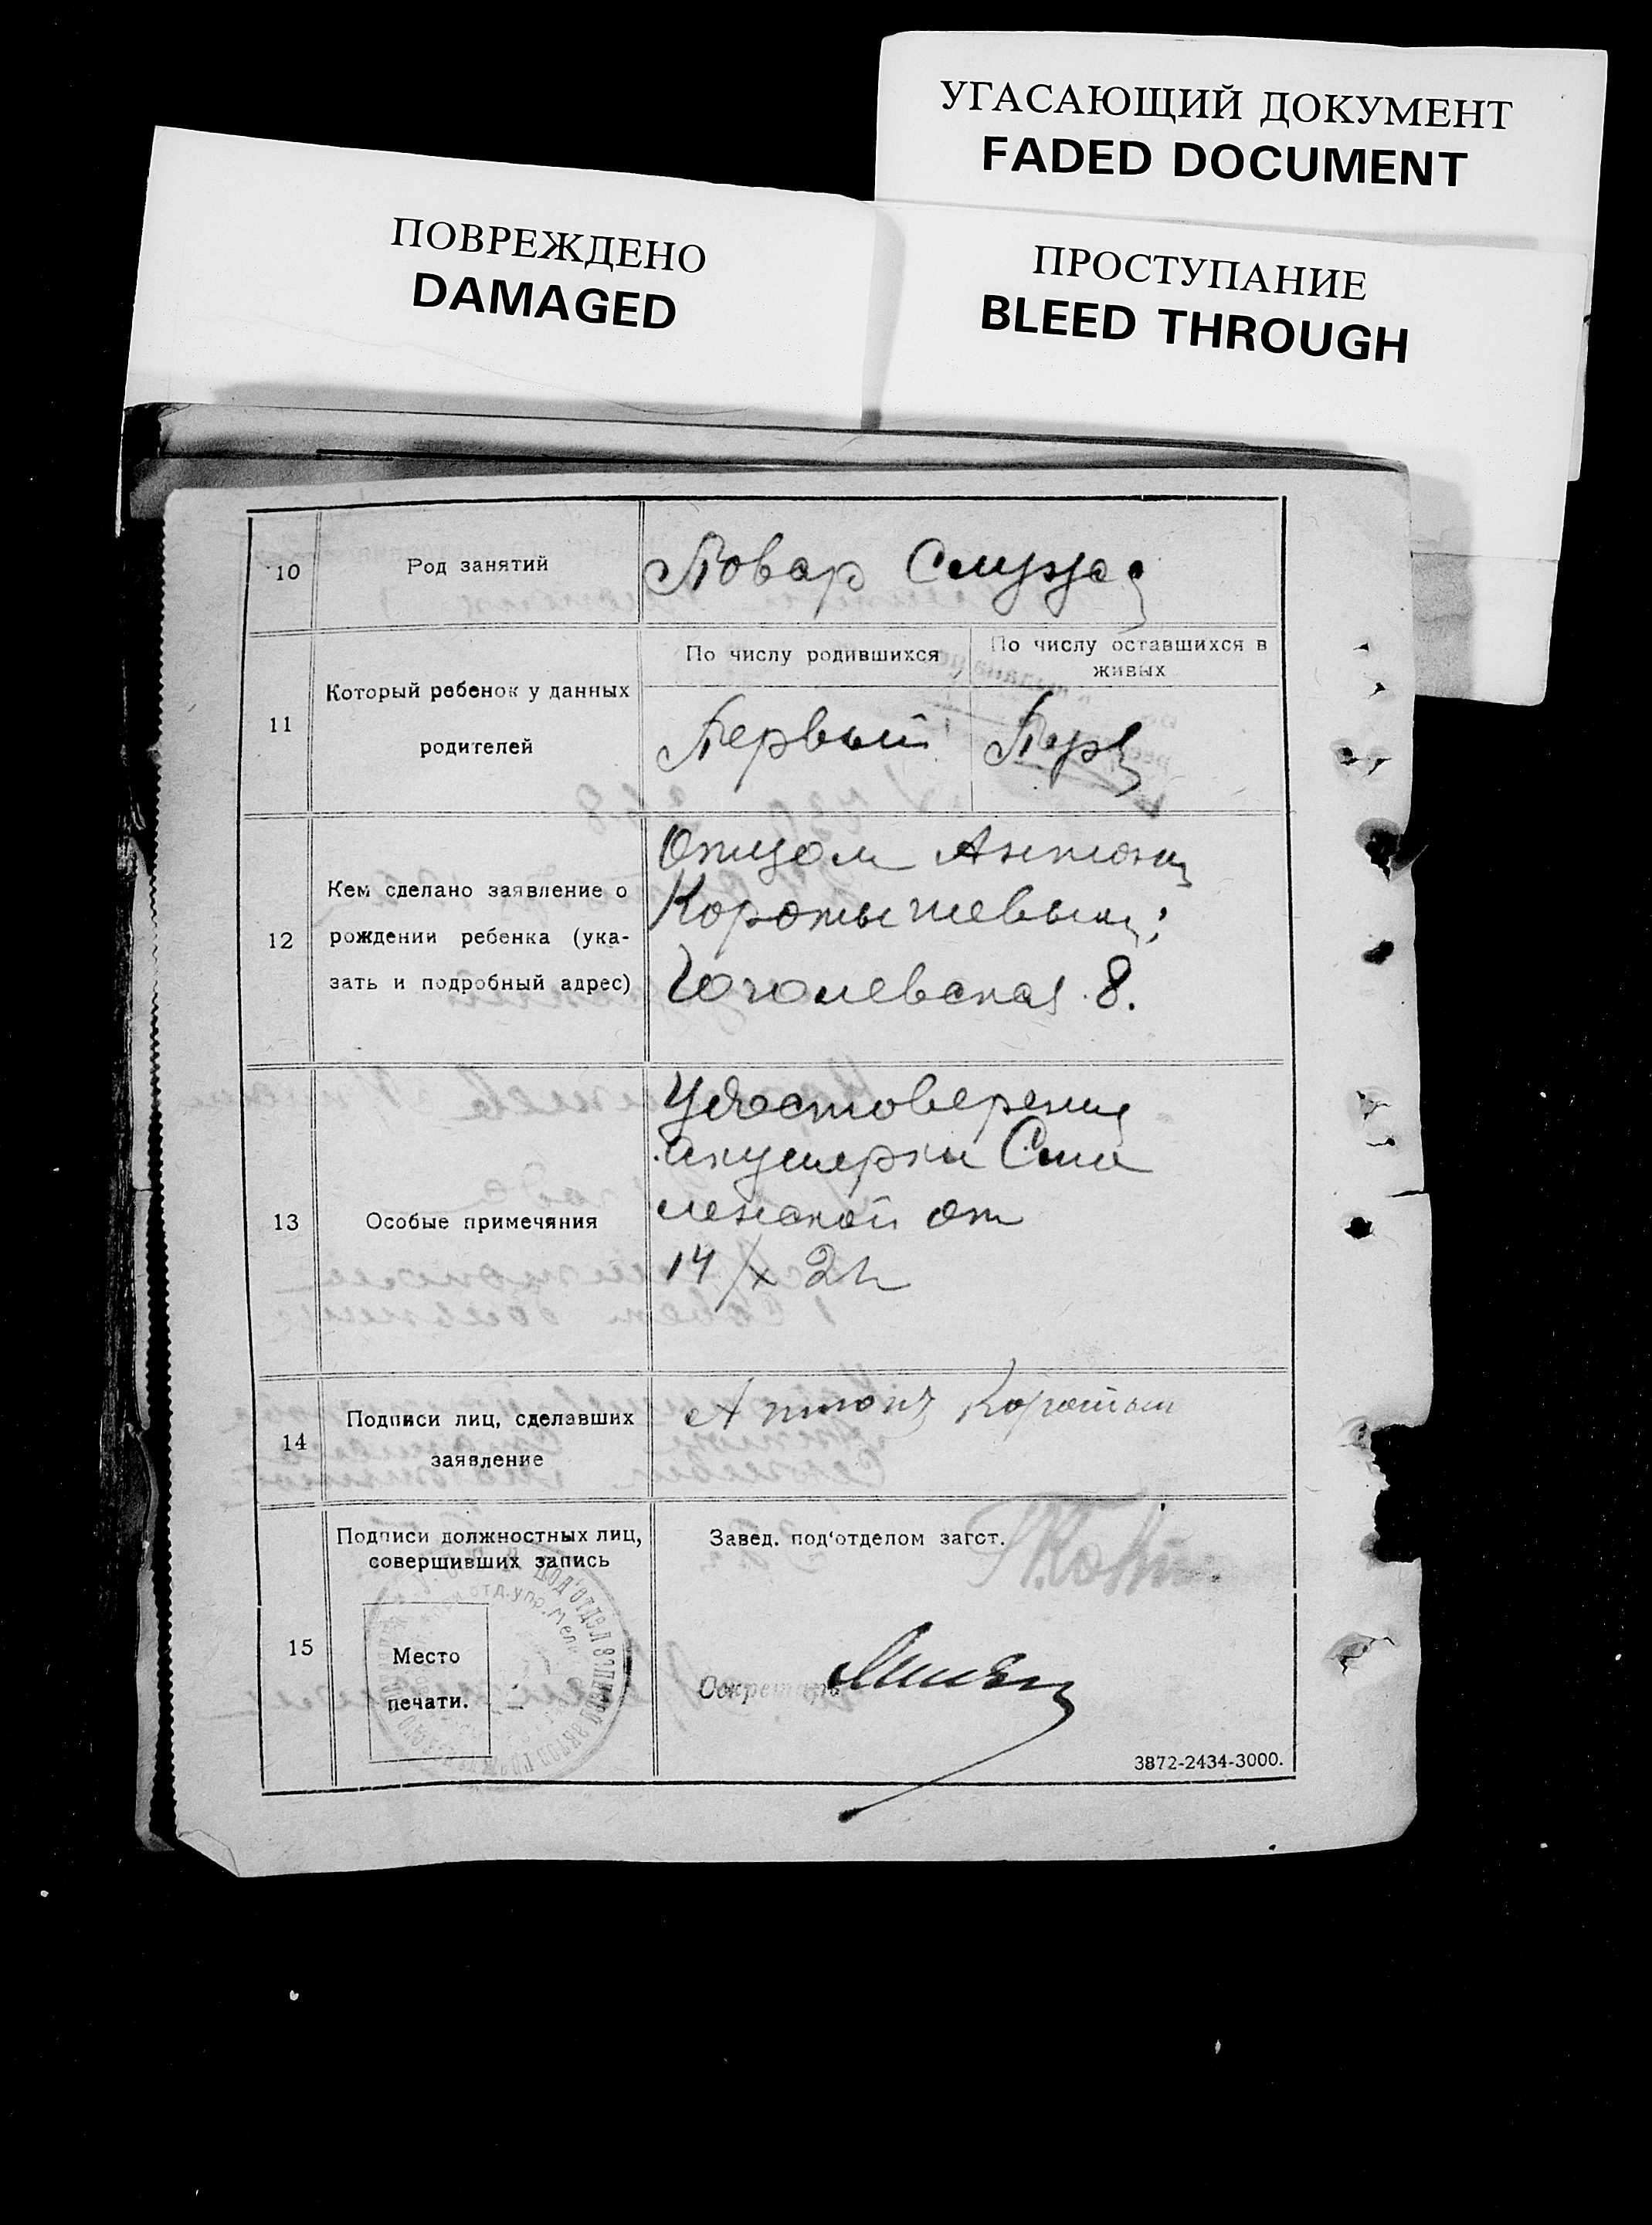 УГАСАЮЩИЙ ДОКУМЕНТ
FADED DOCUMENT
ПОВРЕЖДЕНО
DAMAGED
ПРОСТУПАНИЕ
BLEED THROUGH
10
Род занятий
Повар Служа
11
Который ребенок у данных
родителей
По числу родившихся
По числу оставшихся в
живых
Первый
Перв
12
Кем сделано заявление о
рождении ребенка (ука-
зать и подробный адрес)
Отцом Антон
Коротышевым;
Гоголевская 8.
13
Особые примечания
Удостоверения
акушерки Сми
ленской от
14/X 21
14
Подписи лиц, сделавших
заявление
Антонъ Коротыш
15
Подписи должностных лиц,
совершивших запись
Место
печати.
Завед. под'отделом загст.
Секретарь
3872-2434-3000.